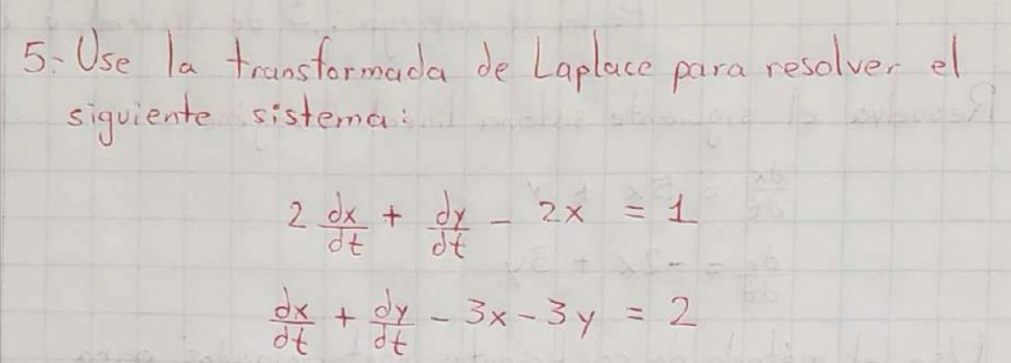 5.- Use la transformada de Laplace para resolver el
siguiente sistema:
2 dx/dt + dy/dt - 2x = 1
dx/dt + dy/dt - 3x - 3y = 2